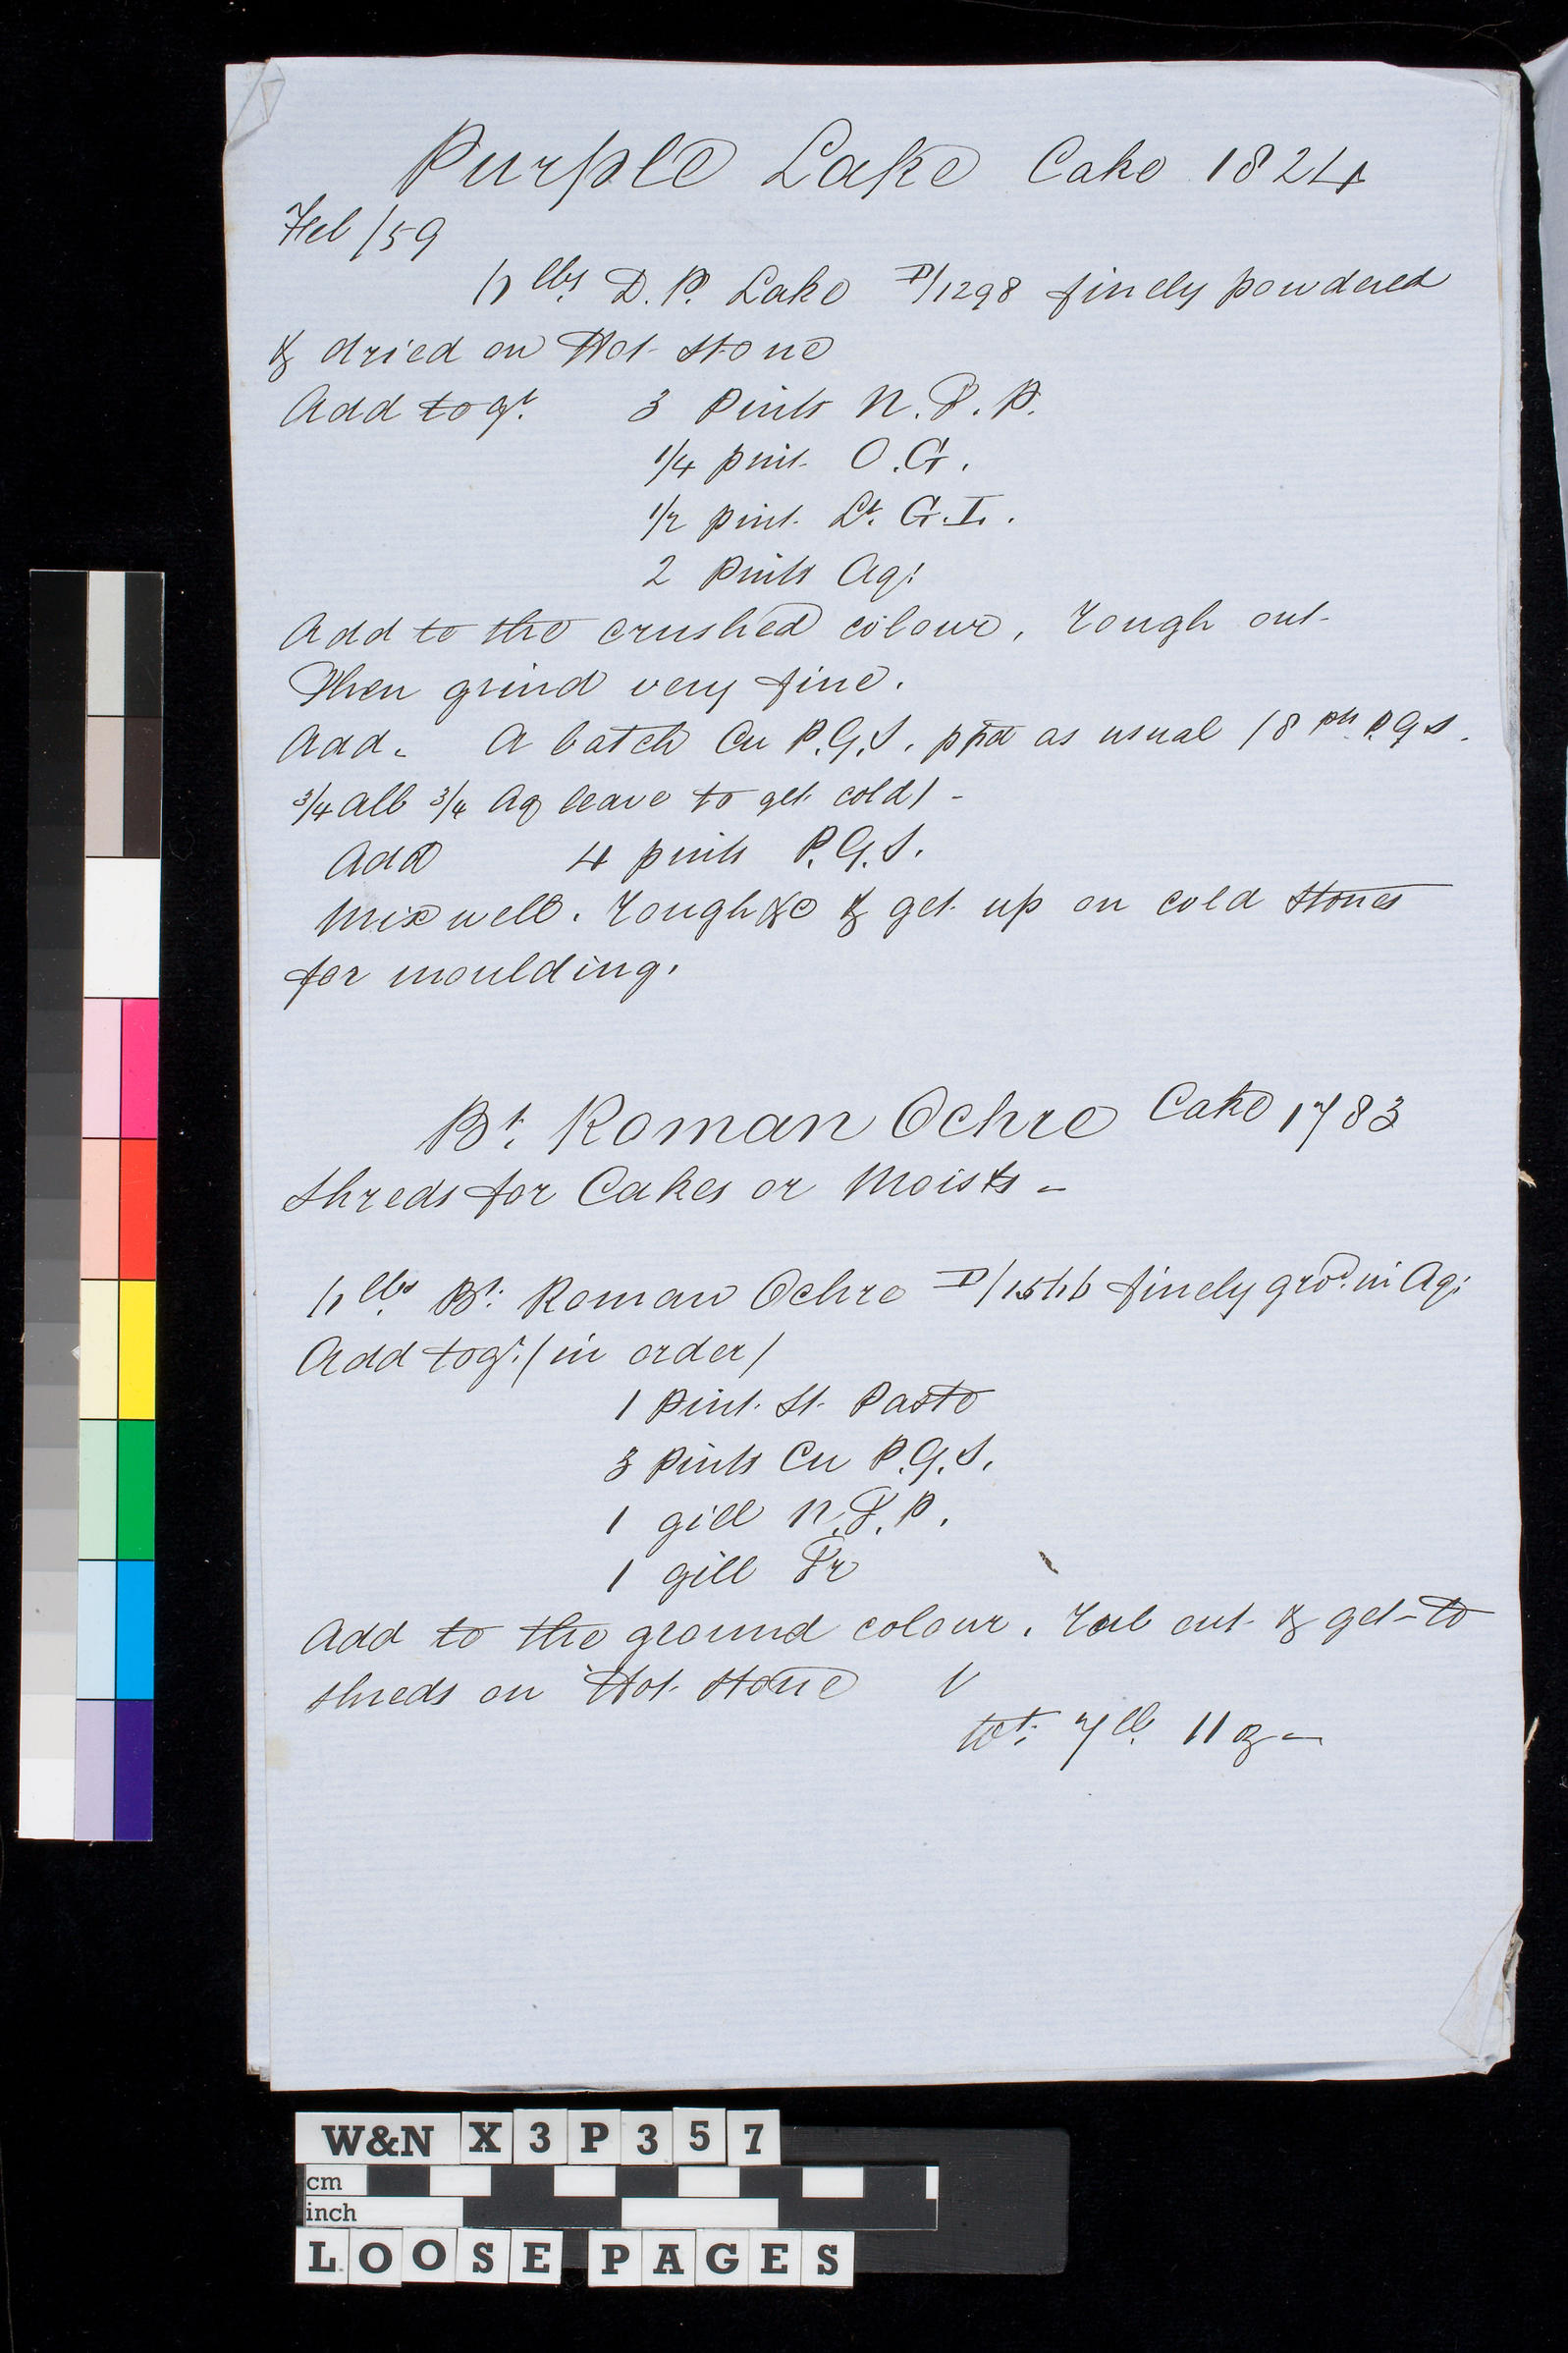 Purple Lake Cake 1824
Feb /59
lbs D.P. Lake D/1298 finely powdered
& dried on Hot stone
Add togr. 3 Pints N.T.P.
1/4 pint O.G.
1/2 pint Lt. G.I.
2 Pints Aq:
Add to the crushed colour. Rough out
Then grind very fine.
Add. A batch Cu P.G.S. ppd as usual / 8 pts P.G.S.
3/4 alb 3/4 Aq leave to get cold / -
Add 4 pints P.G.S.
Mix well. Rough &c & get up on cold stones
for moulding.
Bt. Roman Ochre Cake 1783
Shreds for Cakes or Moists -
lbs Bt: Roman Ochre finely grod. in Aq:
Add togr. / in order /
1 Pint St. Paste
3 Pints Cu P.G.S.
1 gill N.T.P.
1 gill Tr
Add to the ground colour. Rub out & get to
shreds on Hot stone
Wt: 7 lb. 11 oz -
W&N X3P357
cm
inch
LOOSE PAGES